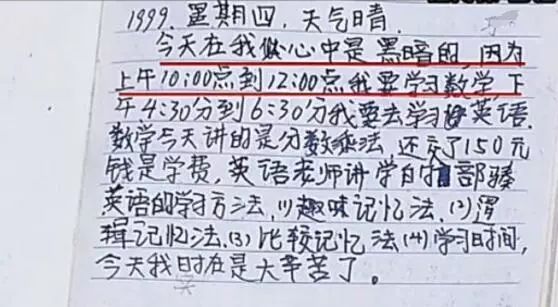 1999. 星期四. 天气晴.
今天在我心中是黑暗的, 因为
上午10:00点到12:00点我要学习数学, 下
午4:30分到6:30分我要去学习英语.
数学今天讲的是分数乘法, 还交了150元
钱是学费, 英语老师讲学的部骤
英语的学习方法, (1)趣味记忆法, (2)逻
辑记忆法, (3)比较记忆法(4)学习时间,
今天我是大辛苦了。